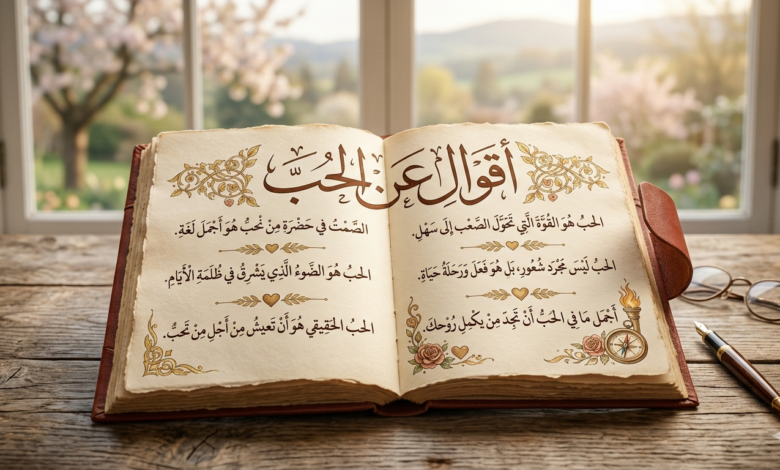 أقوال عن الحبّ
الحبُّ هُوَ القُوَّةُ الَّتِي تَحَوَّلَ الصَّعْب إلَى سَهْلٍ.
الحبُّ لَيْسَ مُجَرَّدَ شُعُورٍ، بَل هُوَ فَعَلَ وَرَحَلَةُ حَيَاةٍ.
أَجْمَل مَا فِي الحَبُّ أَنْ تَجِدَ مِنْ يكْمِل رُوْحَكَ.
الصَّمْتُ فِي حَضْرَةِ مِنْ نُحبُّ هُوَ أَجْمَلَ لُغَةٍ.
الحبُ هُوَ الضَّوءُ الَّذِي يَشْرِقُ فِي ظُلمَةِ الْأَيَّامِ.
الحبُ الحَقِيقِي هُوَ أَنْ تَعِيشُ مِنْ أَجْلِ مِنْ تَحبُّ.